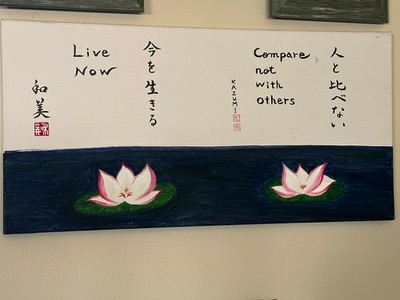 Live
Now
今を生きる
和美
Compare
not
with
others
人と比べない
KAZUMI